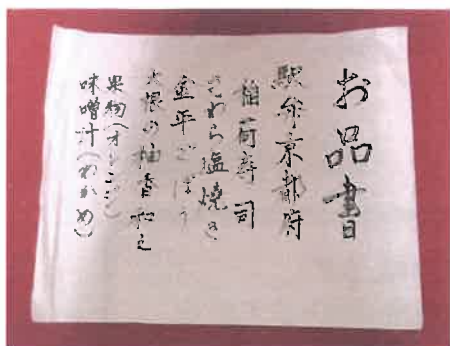 お品書
駅弁京都府
稲荷寿司
さわら塩焼き
金平ごぼう
大根の柚香和え
果物(オレンジ)
味噌汁(わかめ)